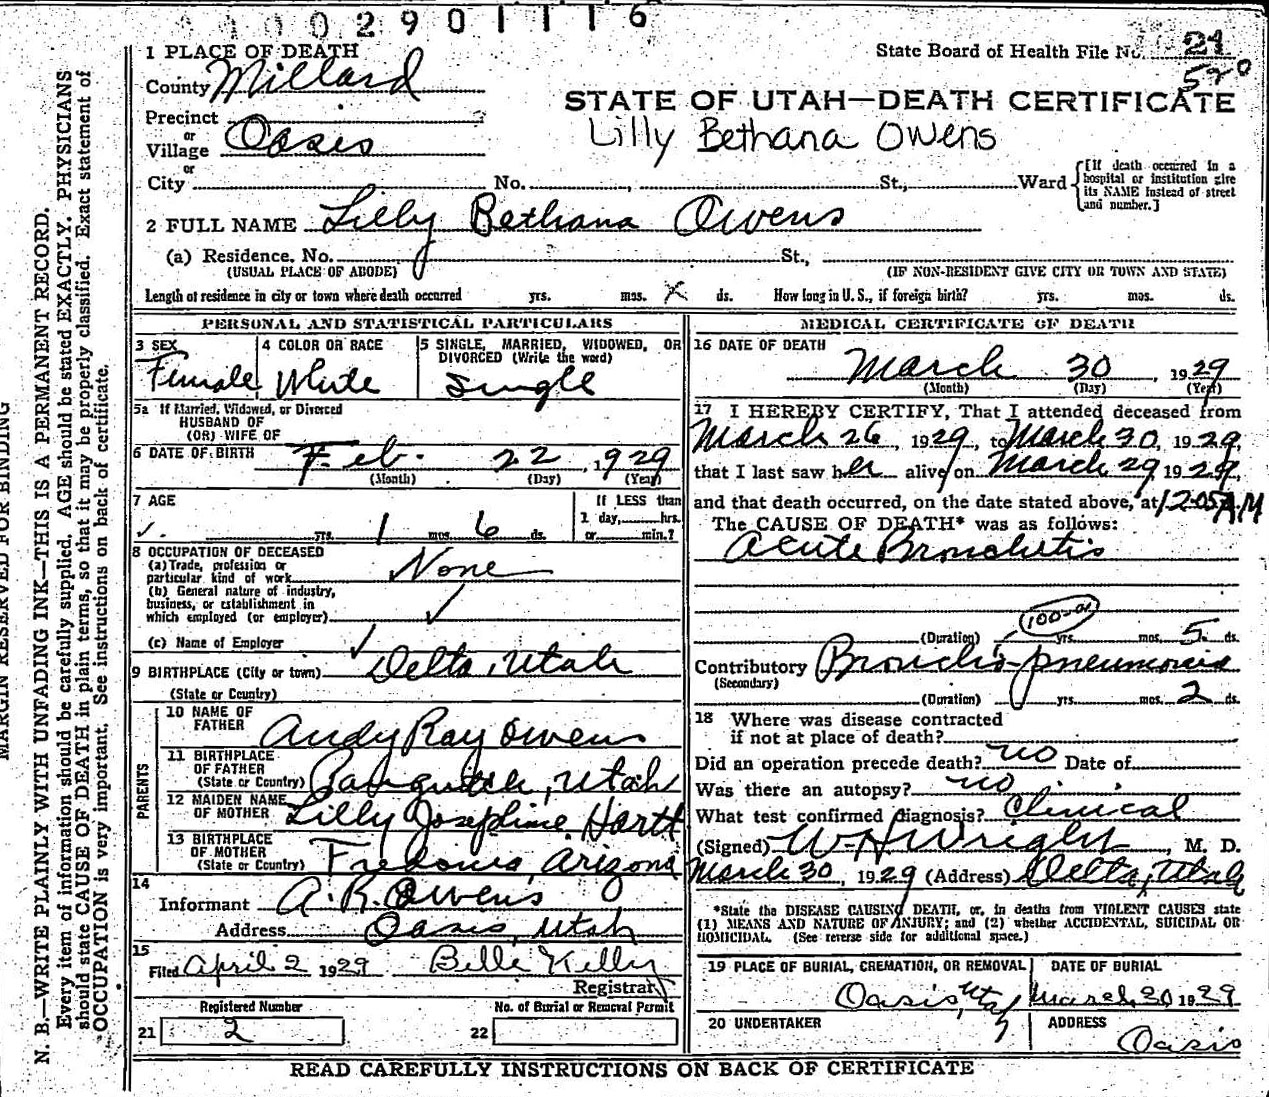 0 0 0 2 9 0 1 1 1 6
1 PLACE OF DEATH
State Board of Health File No. 21
520
County Millard
STATE OF UTAH—DEATH CERTIFICATE
Precinct
or
Village Oasis
Lilly Bethana Owens
or
City No. St., Ward
[If death occurred in a hospital or institution give its NAME instead of street and number.]
2 FULL NAME Lilly Bethana Owens
(a) Residence. No. St.,
(USUAL PLACE OF ABODE) (IF NON-RESIDENT GIVE CITY OR TOWN AND STATE)
Length of residence in city or town where death occurred yrs. mos. X ds. How long in U. S., if foreign birth? yrs. mos. ds.
PERSONAL AND STATISTICAL PARTICULARS
3 SEX Female
4 COLOR OR RACE White
5 SINGLE, MARRIED, WIDOWED, OR DIVORCED (Write the word) Single
5a If Married, Widowed, or Divorced
HUSBAND OF
(OR) WIFE OF
6 DATE OF BIRTH Feb. 22, 1929
(Month) (Day) (Year)
7 AGE yrs. 1 mos. 6 ds.
If LESS than
1 day, hrs.
or min.?
8 OCCUPATION OF DECEASED
(a) Trade, profession or
particular kind of work None
(b) General nature of industry,
business, or establishment in
which employed (or employer) ✓
(c) Name of Employer ✓
9 BIRTHPLACE (City or town) Delta, Utah
(State or Country)
PARENTS
10 NAME OF
FATHER Andy Ray Owens
11 BIRTHPLACE
OF FATHER
(State or Country) Panguitch, Utah
12 MAIDEN NAME
OF MOTHER Lilly Josephine Hartt
13 BIRTHPLACE
OF MOTHER
(State or Country) Fredonia, Arizona
14
Informant A. R. Owens
Address Oasis, Utah
15
Filed April 2 1929 Belle Kelly
Registrar
Registered Number No. of Burial or Removal Permit
21 2 22
MEDICAL CERTIFICATE OF DEATH
16 DATE OF DEATH
March 30, 1929
(Month) (Day) (Year)
17 I HEREBY CERTIFY, That I attended deceased from
March 26, 1929, to March 30, 1929,
that I last saw her alive on March 29, 1929,
and that death occurred, on the date stated above, at 12:05 AM
The CAUSE OF DEATH* was as follows:
Acute Bronchitis
100-01
(Duration) yrs. mos. 5 ds.
Contributory Broncho-pneumonia
(Secondary)
(Duration) yrs. mos. 2 ds.
18 Where was disease contracted
if not at place of death?
Did an operation precede death? no Date of
Was there an autopsy? no
What test confirmed diagnosis? Clinical
(Signed) W H Wright, M. D.
March 30, 1929 (Address) Delta, Utah
*State the DISEASE CAUSING DEATH, or, in deaths from VIOLENT CAUSES state
(1) MEANS AND NATURE OF INJURY; and (2) whether ACCIDENTAL, SUICIDAL OR
HOMICIDAL. (See reverse side for additional space.)
19 PLACE OF BURIAL, CREMATION, OR REMOVAL DATE OF BURIAL
Oasis, Utah March 30 1929
20 UNDERTAKER ADDRESS
Oasis
READ CAREFULLY INSTRUCTIONS ON BACK OF CERTIFICATE
MARGIN RESERVED FOR BINDING
N. B.—WRITE PLAINLY WITH UNFADING INK—THIS IS A PERMANENT RECORD.
Every item of information should be carefully supplied. AGE should be stated EXACTLY. PHYSICIANS
should state CAUSE OF DEATH in plain terms, so that it may be properly classified. Exact statement of
OCCUPATION is very important. See instructions on back of certificate.